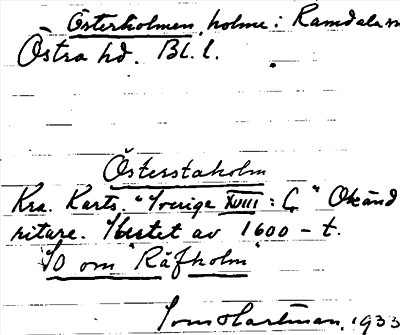 Österholmen, holme i Ramdala sn
Östra hd. Bl. l.
Österstaholm
Kra. Karts. "Sverige XVIII: C" Okänd
ritare. Slutet av 1600-t.
SO om "Räfholm"
Hartman, 1933